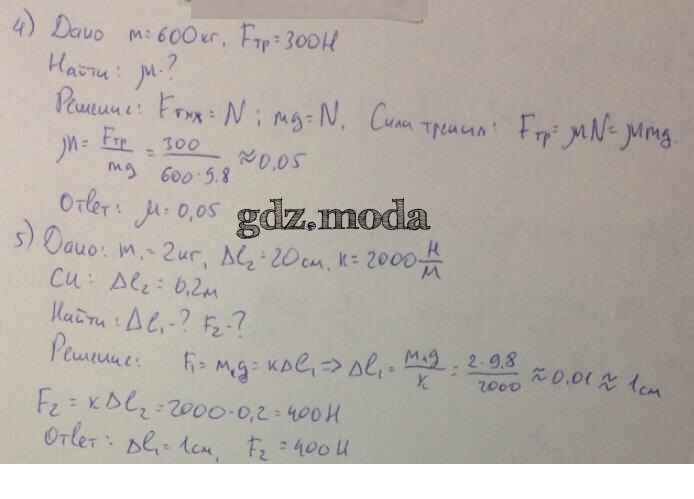 4) Дано m = 600 кг, Fтр = 300Н
Найти: μ-?
Решение: Fтяж = N ; mg = N. Сила трения: Fтр = μN = μmg.
μ = Fтр/mg = 300/600·9.8 ≈ 0,05
Ответ: μ = 0,05
gdz.moda
5) Дано: m₁ = 2кг, Δl₂ = 20см, к = 2000 Н/м
СИ: Δl₂ = 0,2м
Найти: Δl₁-? F₂-?
Решение: F₁ = m₁g = кΔl₁ ⇒ Δl₁ = m₁g/к = 2·9.8/2000 ≈ 0,01 ≈ 1см
F₂ = кΔl₂ = 2000·0,2 = 400Н
Ответ: Δl₁ = 1см, F₂ = 400Н